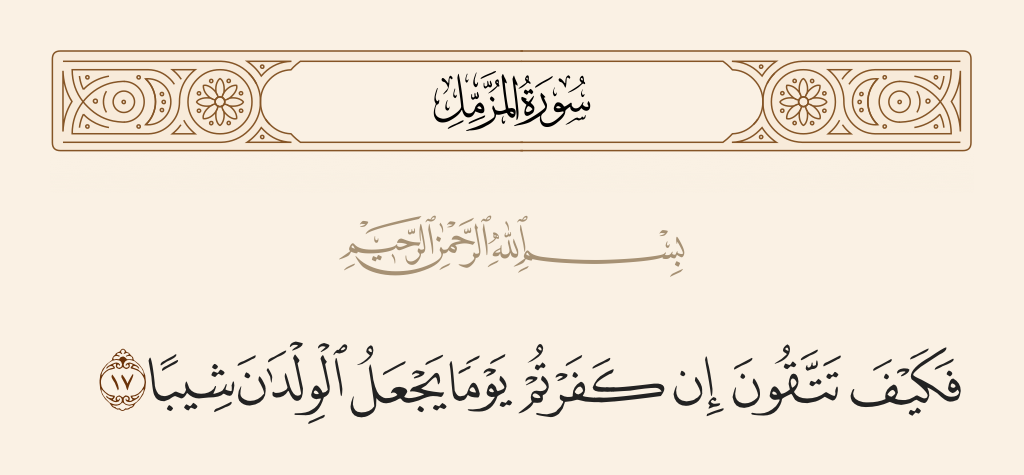 سُورَةُ المُزَّمِّلِ
بِسْمِ ٱللَّهِ ٱلرَّحْمَٰنِ ٱلرَّحِيمِ
فَكَيْفَ تَتَّقُونَ إِن كَفَرْتُمْ يَوْمًا يَجْعَلُ ٱلْوِلْدَٰنَ شِيبًا ١٧